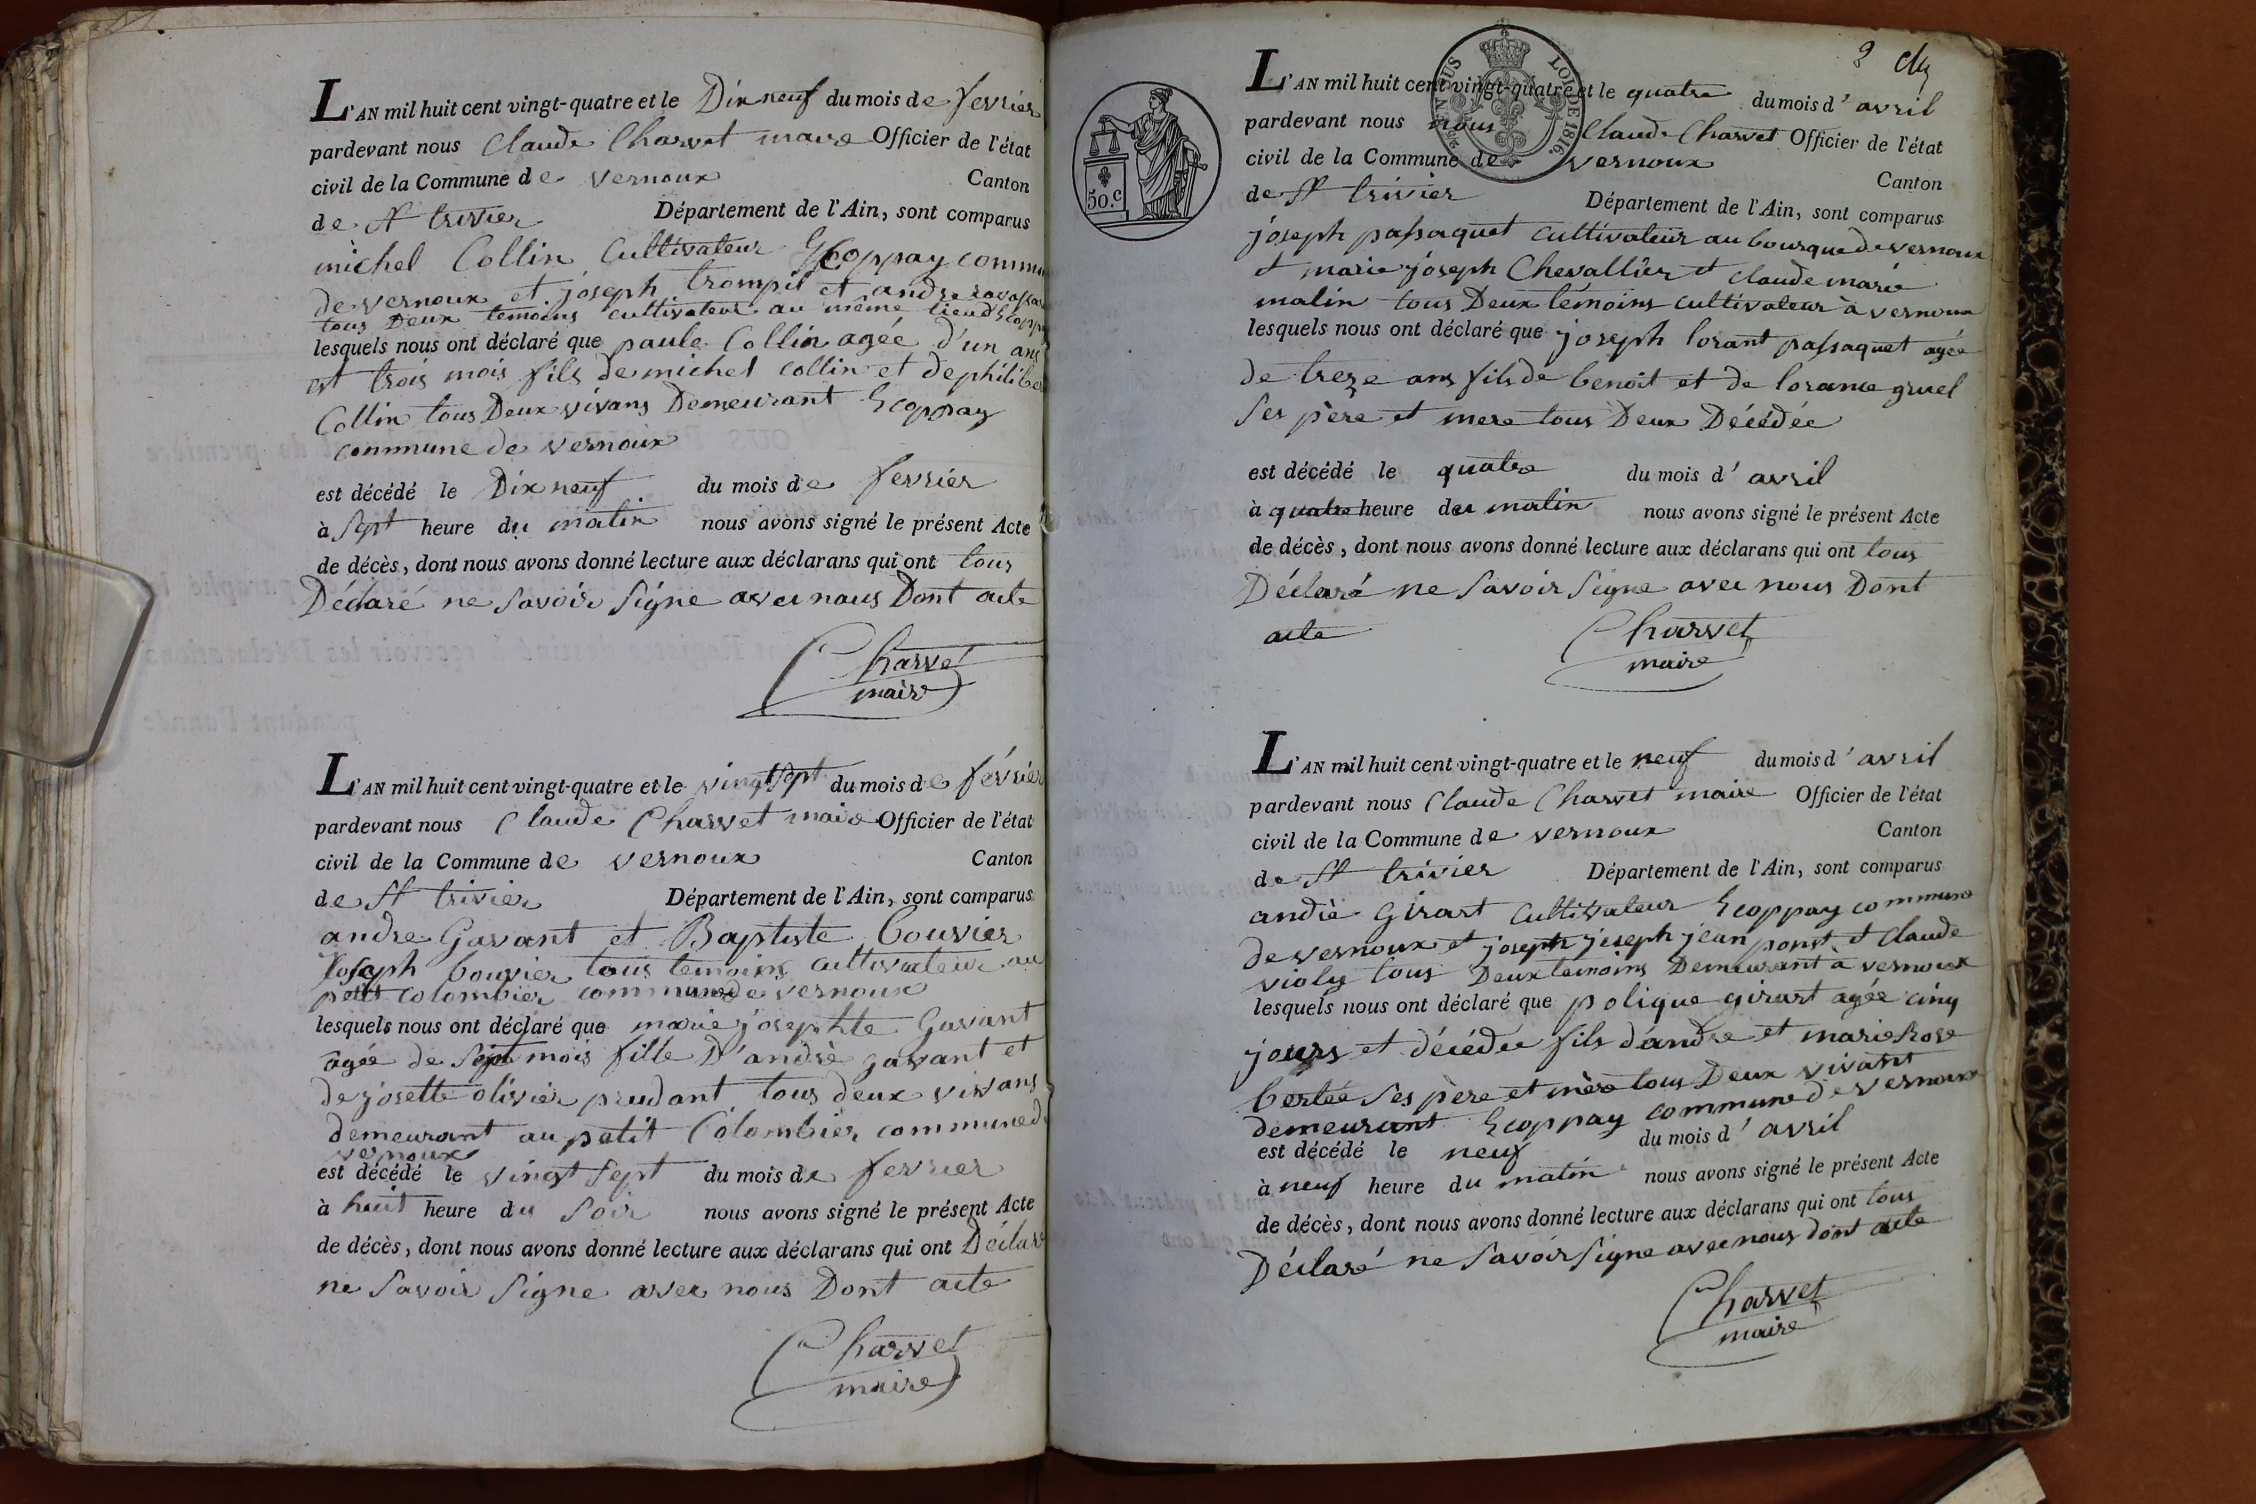 L'AN mil huit cent vingt-quatre et le Dix neuf du mois de fevrier
pardevant nous Claude Charvet maire Officier de l'état
civil de la Commune de vernoux Canton
de St trivier Département de l'Ain, sont comparus
michel Collin Cultivateur Ecoppay commu
de vernoux et joseph trompil et andre
tous Deux temoins cultivateur au même lieud Ecopp
lesquels nous ont déclaré que paule Collin agée d'un ans
et trois mois fils de michel collin et de philibe
Collin tous Deux vivans Demeurant Ecoppay
commune de vernoux
est décédé le Dix neuf du mois de fevrier
à Sept heure du matin nous avons signé le présent Acte
de décès, dont nous avons donné lecture aux déclarans qui ont tous
Déclaré ne Savoir Signe avec nous Dont acte
Charvet
maire
L'AN mil huit cent vingt-quatre et le vingt Sept du mois de février
pardevant nous Claude Charvet maire Officier de l'état
civil de la Commune de vernoux Canton
de St trivier Département de l'Ain, sont comparus
andre Gavant et Baptiste bouvier
Joseph bouvier tous temoins cultivateur au
petit colombier commune de vernoux
lesquels nous ont déclaré que marie josephte Gavant
agée de Sept mois fille D'andrè gavant et
de josette olivier prudant tous deux vivans
demeurant au petit Colombier commune d
vernoux
est décédé le vingt Sept du mois de fevrier
à huit heure du Soir nous avons signé le présent Acte
de décès, dont nous avons donné lecture aux déclarans qui ont Déclar
ne Savoir Signe avec nous Dont acte
Charvet
maire
3
50.c
LOI DE 1816.
L'AN mil huit cent vingt-quatre et le quatre du mois d'avril
pardevant nous nous Claude Charvet Officier de l'état
civil de la Commune de vernoux Canton
de St trivier Département de l'Ain, sont comparus
joseph passaquet cultivateur au bourque de vernoux
et marie joseph Chevallier et claude marie
malin tous Deux témoins cultivateur à vernoux
lesquels nous ont déclaré que joseph lorant passaquet agée
de treze ans fils de benoit et de lorance gruel
Ses père et mere tous Deux Décédée
est décédé le quatre du mois d'avril
à quatre heure du matin nous avons signé le présent Acte
de décès, dont nous avons donné lecture aux déclarans qui ont tous
Déclaré ne Savoir Signe avec nous Dont
acte
Charvet
maire
L'AN mil huit cent vingt-quatre et le neuf du mois d'avril
pardevant nous Claude Charvet maire Officier de l'état
civil de la Commune de vernoux Canton
de St trivier Département de l'Ain, sont comparus
andiè Girart Cultivateur Ecoppay commune
de vernoux et joseph joseph jean pont et Claude
violy tous Deux temoins Demeurant a vernoux
lesquels nous ont déclaré que polique girart agée cinq
jours et décédée fils d'andre et marie Rose
bertée Ses père et mère tous Deux vivant
demeurant Ecoppay commune de vernoux
est décédé le neuf du mois d'avril
à neuf heure du matin nous avons signé le présent Acte
de décès, dont nous avons donné lecture aux déclarans qui ont tous
Déclaré ne Savoir Signe avec nous dont acte
Charvet
maire